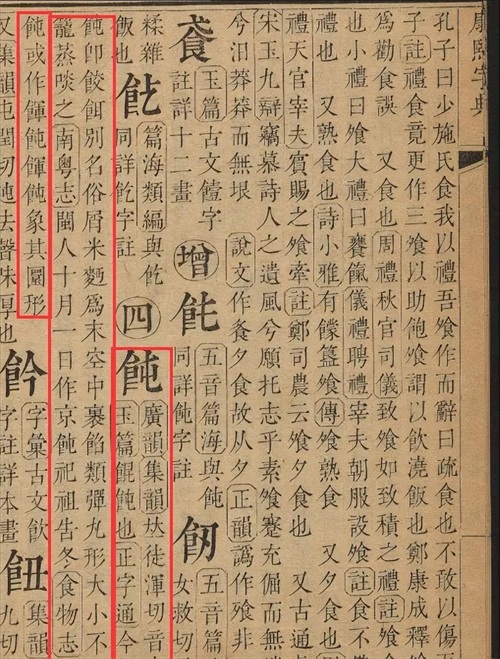 康熙字典
孔子曰少施氏食我以禮吾飧作而辭曰疏食也不敢以傷
子註禮食竟更作三飧以助飽飧謂以飲澆飯也鄭康成釋
爲勸食誤 又食也周禮秋官司儀致飧如致積之禮註飧食
也小禮曰飧大禮曰饔餼儀禮聘禮宰夫朝服設飧註食不
禮也 又熟食也詩小雅有饛簋飧傳飧熟食 又夕食也
禮天官宰夫賓賜之飧牽註鄭司農云飧夕食也 又古通
宋玉九辯竊慕詩人之遺風兮願托志乎素飧蹇充倔而無
兮汩莽莽而無垠 說文作飧夕食故从夕正韻譌作飱非
飬
玉篇古文饐字
註詳十二畫
增
五音篇海與飩
同詳飩字註
五音篇
女救切
糅雜
飯也
篇海類編與飥
同詳飥字註
四
飩
廣韻集韻𠀤徒渾切音
玉篇餛飩也正字通今
飩卽餃餌別名俗屑米麪爲末空中裹餡類彈丸形大小不
籠蒸啖之南粵志閩人十月一日作京飩祀祖告冬食物志
飩或作餫飩餫飩象其圜形
又集韻屯閏切飩去聲味厚也
字彙古文飲
字註詳本畫
集韻
九切